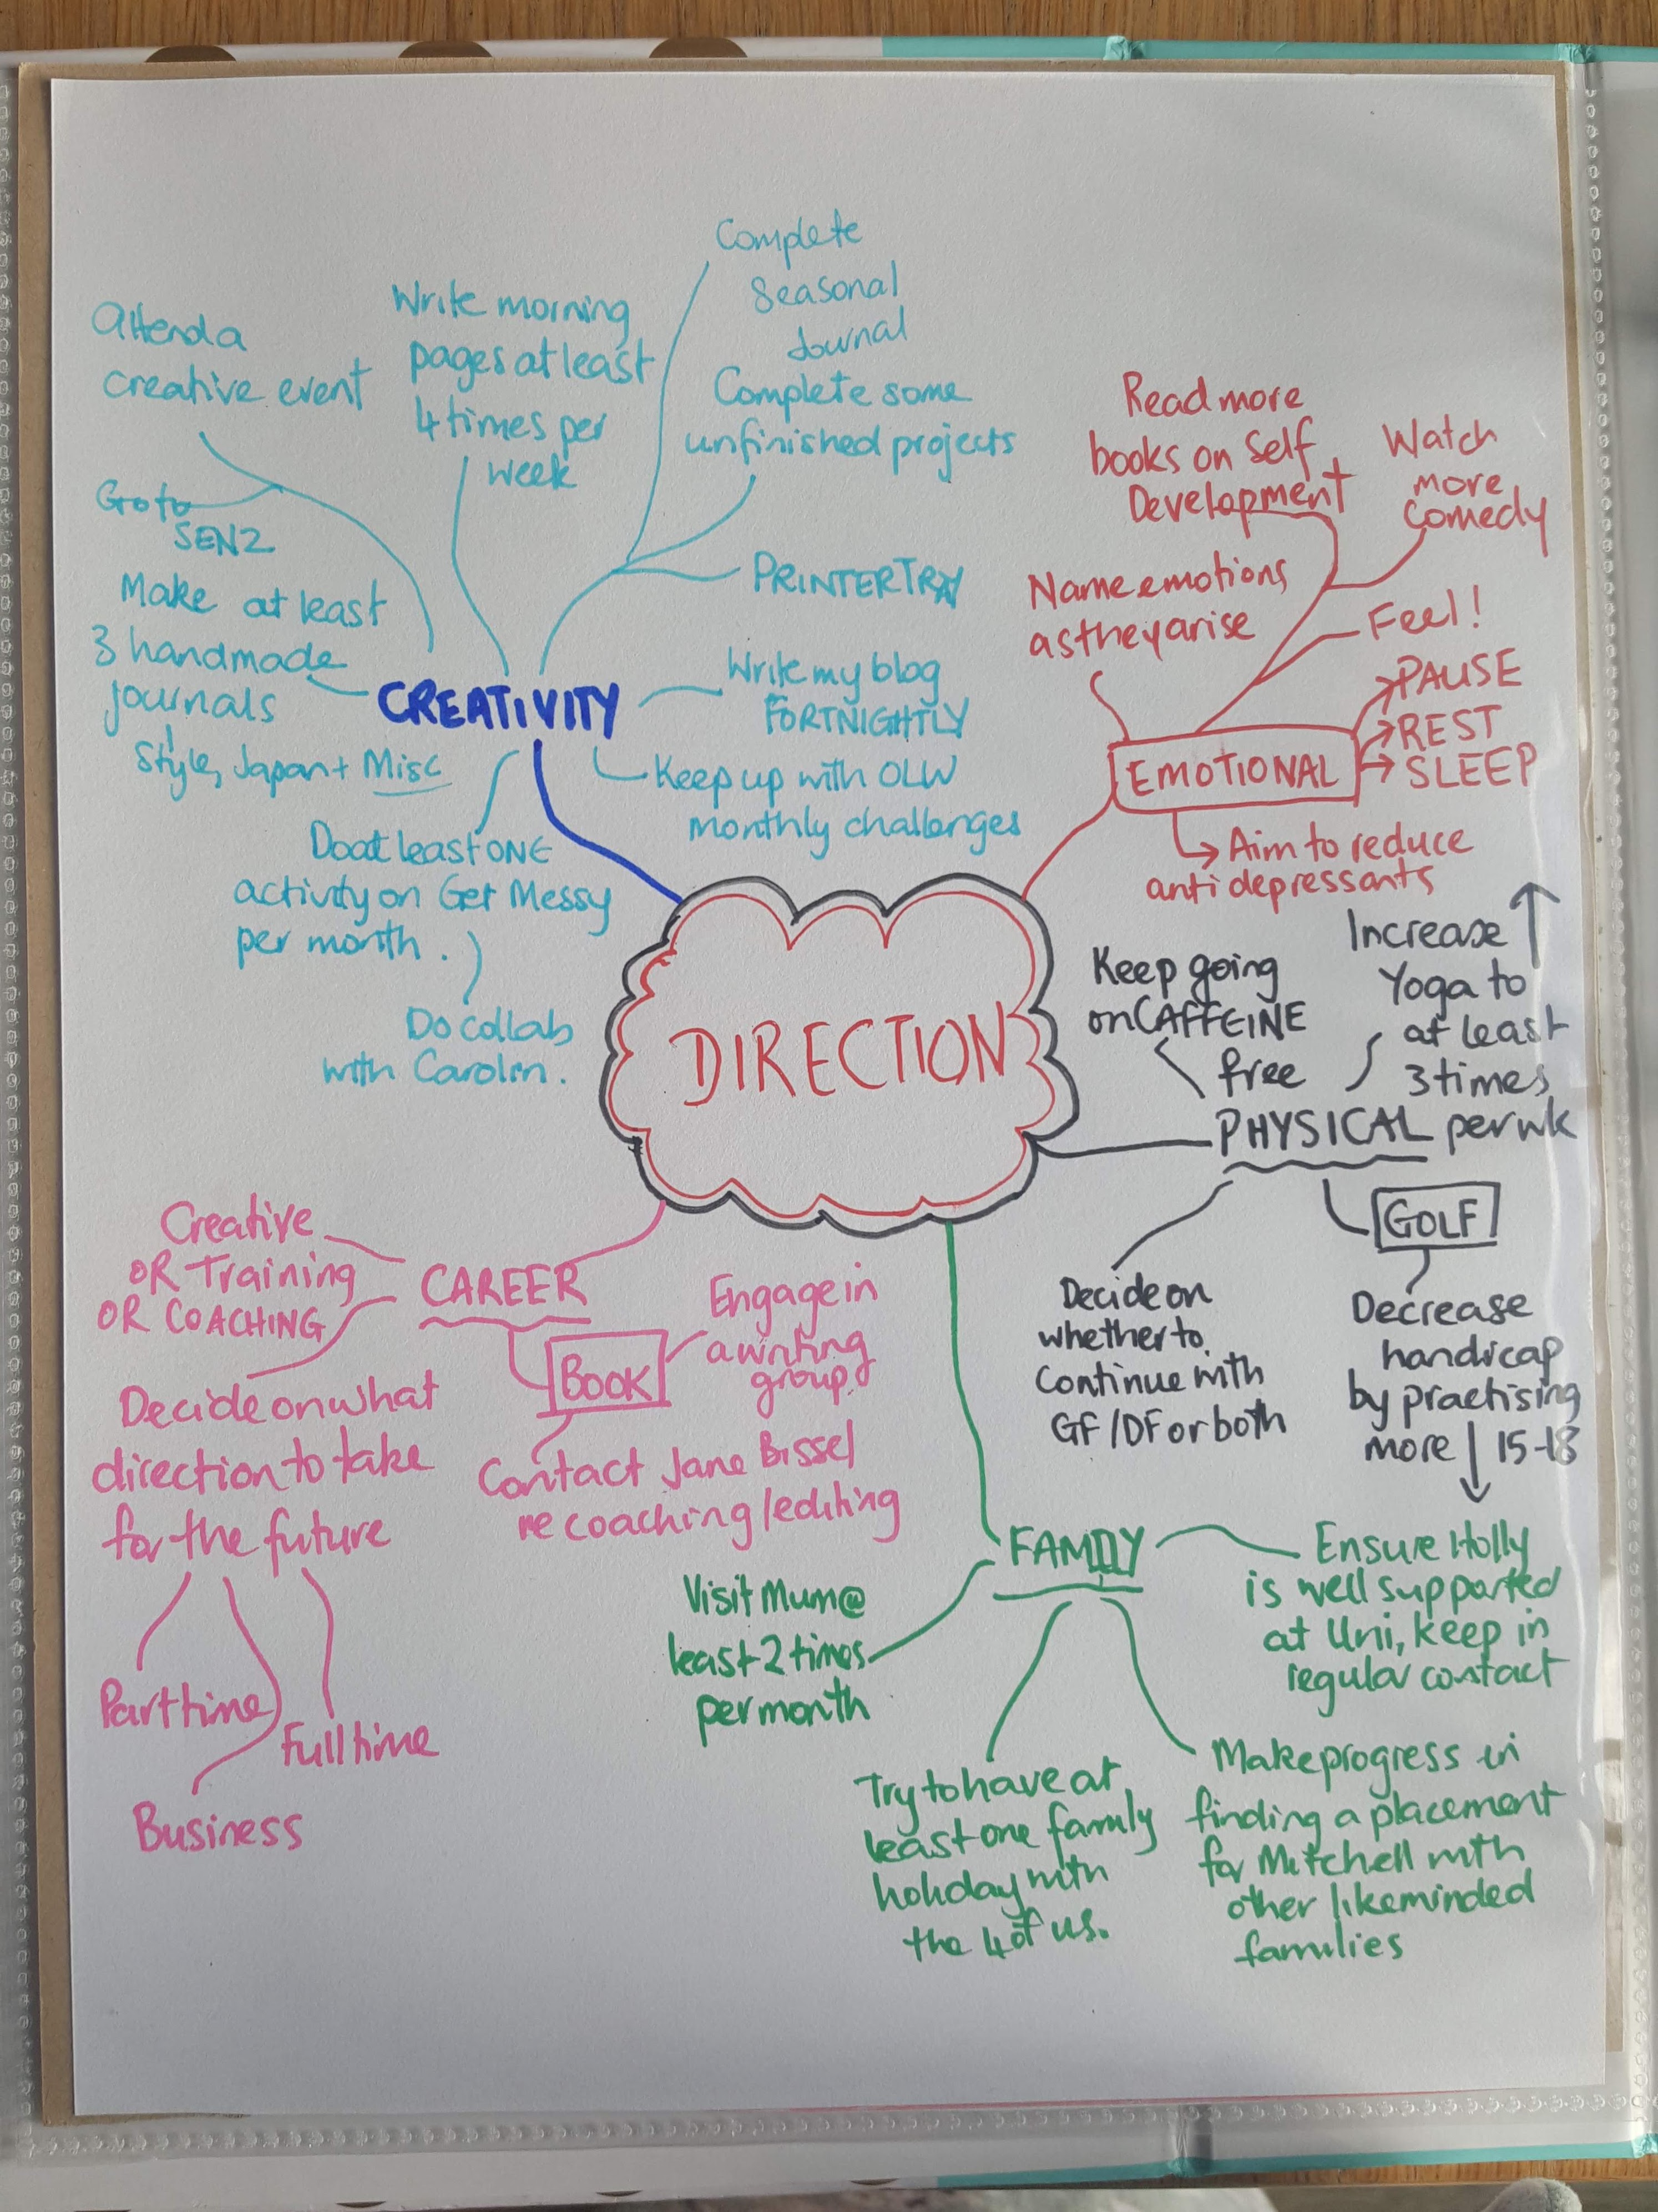 Attend a
creative event
Go to
SENZ
Write morning
pages at least
4 times per
week
Complete
Seasonal
Journal
Complete some
unfinished projects
PRINTER TRAY
Make at least
3 handmade
journals
Style, Japan + Misc
CREATIVITY
Write my blog
FORTNIGHTLY
Keep up with OLW
monthly challenges
Do at least ONE
activity on Get Messy
per month.
Do collab
with Carolin.
Read more
books on Self
Development
Watch
more
Comedy
Name emotions
as they arise
Feel!
PAUSE
REST
SLEEP
EMOTIONAL
Aim to reduce
anti depressants
DIRECTION
Keep going
on CAFFEINE
free
Increase
Yoga to
at least
3 times
per wk
PHYSICAL
GOLF
Decide on
whether to
Continue with
GF/DF or both
Decrease
handicap
by practising
more 15-18
Creative
OR Training
OR COACHING
CAREER
BOOK
Engage in
a writing
group
Contact Jane Bissel
re coaching/editing
Decide on what
direction to take
for the future
Part time
Full time
Business
FAMILY
Visit Mum @
least 2 times
per month
Ensure Holly
is well supported
at Uni, keep in
regular contact
Try to have at
least one family
holiday with
the 4 of us.
Make progress in
finding a placement
for Mitchell with
other likeminded
families